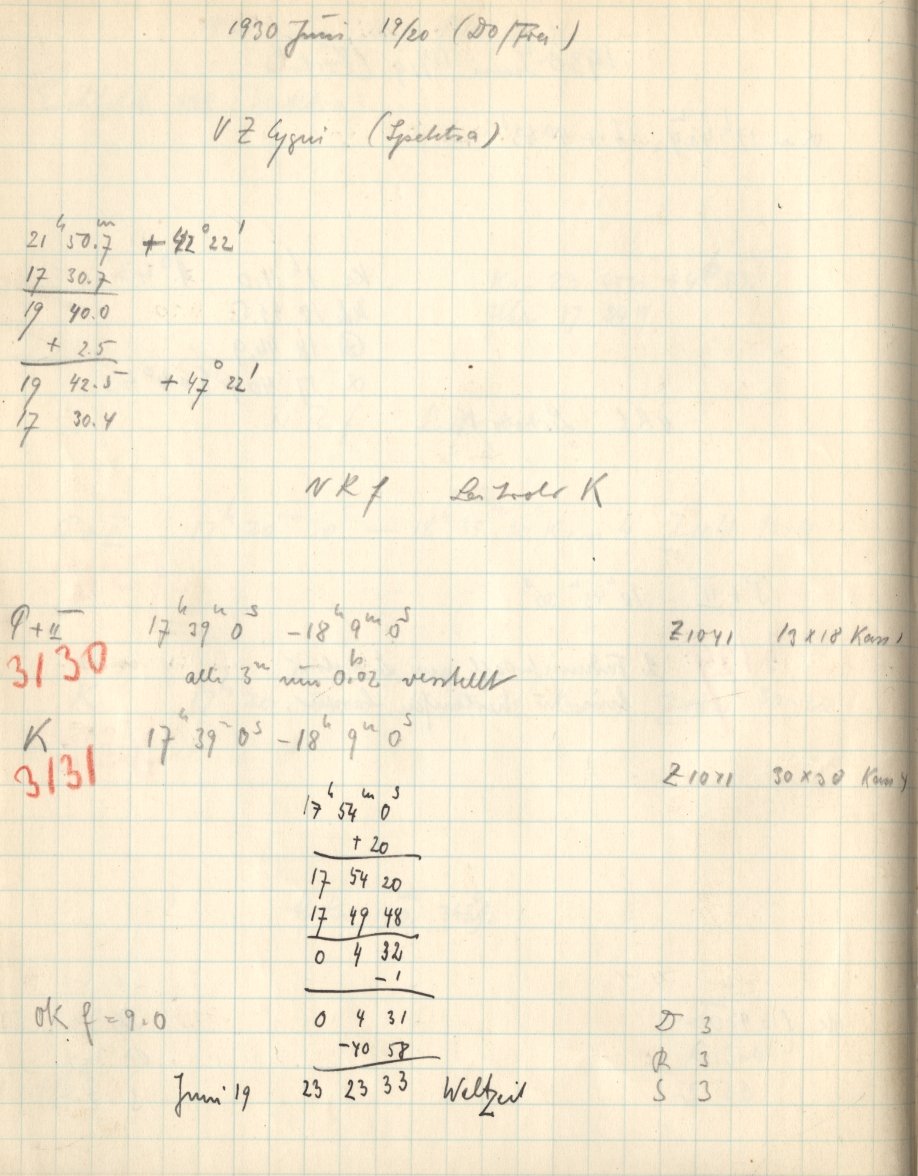 1930 Juni 19/20 (Do/Frei)
VZ Cygni (Spektra)
21ʰ 50.7ᵐ + 42° 22'
17 30.7
19 40.0
+ 2.5
19 42.5 + 47° 22'
17 30.4
NKf Leitrohr K
P + II 17ʰ 39ᵐ 0ˢ -18ʰ 9ᵐ 0ˢ Z1041 13 x 18 Kass 1
3130 alle 3ᵐ um 0.02 verstellt
K 17ʰ 39ᵐ 0ˢ -18ʰ 9ᵐ 0ˢ
3131 Z1071 30 x 30 Kass 4
17ʰ 54ᵐ 0ˢ
+ 20
17 54 20
17 49 48
0 4 32
- 1
OK f = 9.0 0 4 31 D 3
-40 58 R 3
Juni 19 23 23 33 Weltzeit S 3